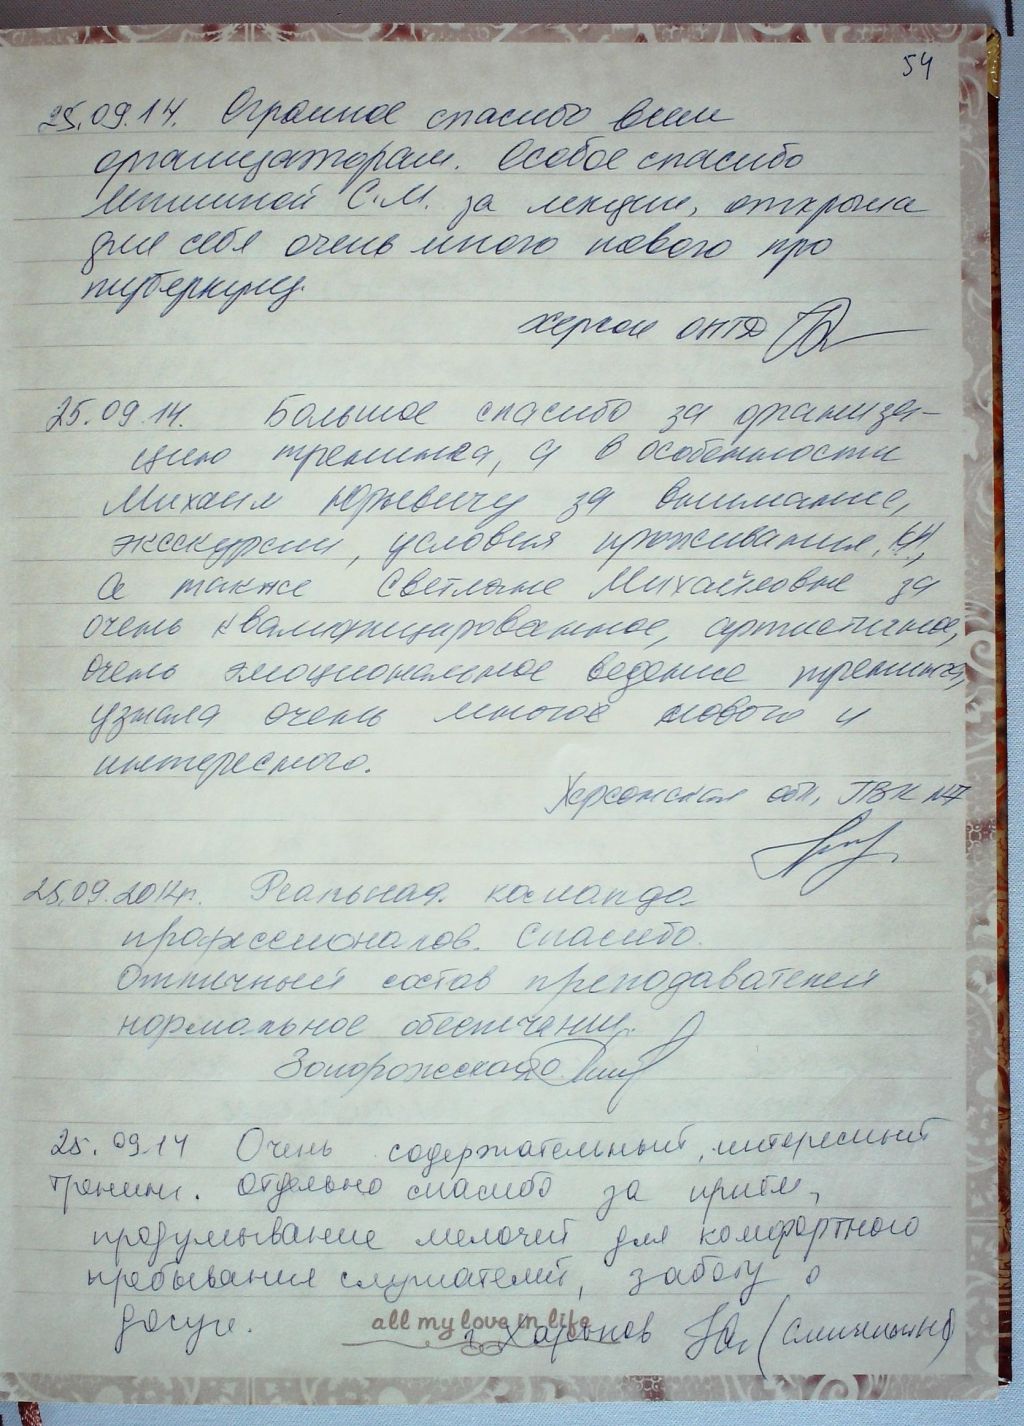 54
25.09.14. Огромное спасибо всем
организаторам. Особое спасибо
С.М. за лекции, открыла
для себя очень много нового про
туберкулез.
Херсон
25.09.14. Большое спасибо за организа-
цию тренинга, а в особенности
Михаил Юрьевичу за внимание,
экскурсии, условия проживания,
а также Светлане Михайловне за
очень квалифицированное, артистичное,
очень эмоциональное ведение тренинга,
узнала очень многое нового и
интересного.
Херсонская обл.
25.09.2014г. Реальная команда
профессионалов. Спасибо.
Отличный состав преподавателей
нормальное обеспечение.
Запорожская
25.09.14 Очень содержательный, интересный
тренинг. Отдельно спасибо за приём,
продумывание мелочей для комфортного
пребывания слушателей, заботу о
досуге.
all my love in life
г Харьков